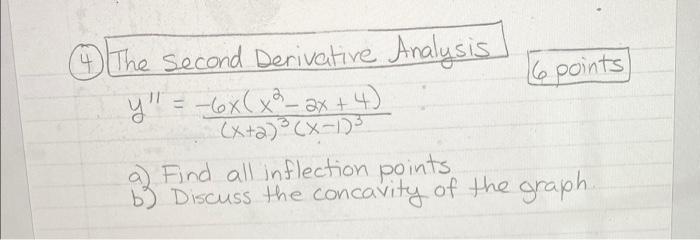 4 The Second Derivative Analysis
6 points
y'' = -6x(x² - 2x + 4)
(x+2)³(x-1)³
a) Find all inflection points
b) Discuss the concavity of the graph.